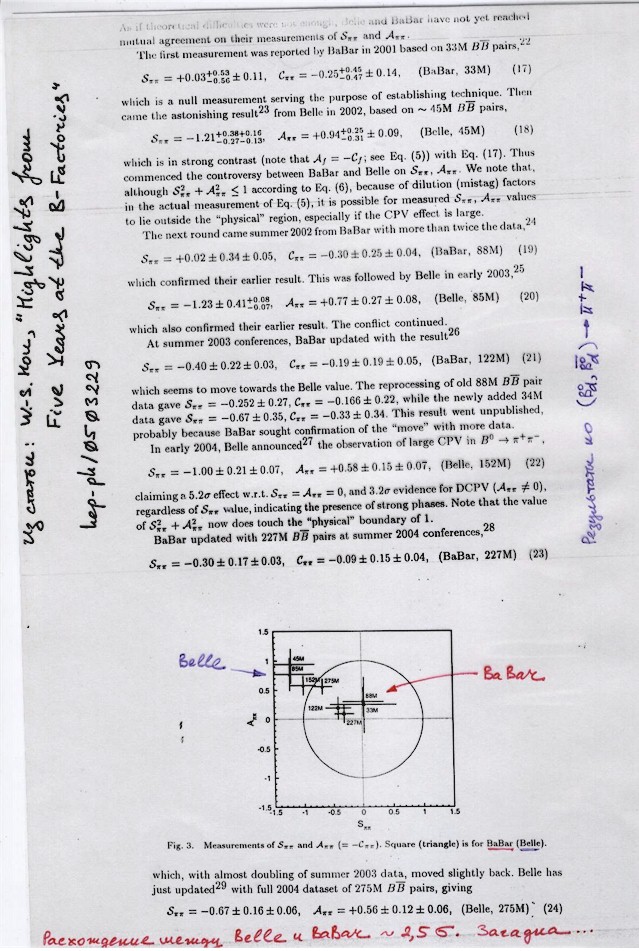 As if theoretical difficulties were not enough, Belle and BaBar have not yet reached
mutual agreement on their measurements of Sππ and Aππ.
The first measurement was reported by BaBar in 2001 based on 33M BB̅ pairs,22
Sππ = +0.03+0.53−0.56 ± 0.11, Cππ = −0.25+0.45−0.47 ± 0.14, (BaBar, 33M) (17)
which is a null measurement serving the purpose of establishing technique. Then
came the astonishing result23 from Belle in 2002, based on ~ 45M BB̅ pairs,
Sππ = −1.21+0.38+0.16−0.27−0.13, Aππ = +0.94+0.25−0.31 ± 0.09, (Belle, 45M) (18)
which is in strong contrast (note that Af = −Cf; see Eq. (5)) with Eq. (17). Thus
commenced the controversy between BaBar and Belle on Sππ, Aππ. We note that,
although S²ππ + A²ππ ≤ 1 according to Eq. (6), because of dilution (mistag) factors
in the actual measurement of Eq. (5), it is possible for measured Sππ, Aππ values
to lie outside the "physical" region, especially if the CPV effect is large.
The next round came summer 2002 from BaBar with more than twice the data,24
Sππ = +0.02 ± 0.34 ± 0.05, Cππ = −0.30 ± 0.25 ± 0.04, (BaBar, 88M) (19)
which confirmed their earlier result. This was followed by Belle in early 2003,25
Sππ = −1.23 ± 0.41+0.08−0.07, Aππ = +0.77 ± 0.27 ± 0.08, (Belle, 85M) (20)
which also confirmed their earlier result. The conflict continued.
At summer 2003 conferences, BaBar updated with the result26
Sππ = −0.40 ± 0.22 ± 0.03, Cππ = −0.19 ± 0.19 ± 0.05, (BaBar, 122M) (21)
which seems to move towards the Belle value. The reprocessing of old 88M BB̅ pair
data gave Sππ = −0.252 ± 0.27, Cππ = −0.166 ± 0.22, while the newly added 34M
data gave Sππ = −0.67 ± 0.35, Cππ = −0.33 ± 0.34. This result went unpublished,
probably because BaBar sought confirmation of the "move" with more data.
In early 2004, Belle announced27 the observation of large CPV in B⁰ → π⁺π⁻,
Sππ = −1.00 ± 0.21 ± 0.07, Aππ = +0.58 ± 0.15 ± 0.07, (Belle, 152M) (22)
claiming a 5.2σ effect w.r.t. Sππ = Aππ = 0, and 3.2σ evidence for DCPV (Aππ ≠ 0),
regardless of Sππ value, indicating the presence of strong phases. Note that the value
of S²ππ + A²ππ now does touch the "physical" boundary of 1.
BaBar updated with 227M BB̅ pairs at summer 2004 conferences,28
Sππ = −0.30 ± 0.17 ± 0.03, Cππ = −0.09 ± 0.15 ± 0.04, (BaBar, 227M) (23)
Из статьи: W.-S. Hou, "Highlights from
Five Years at the B-Factories"
hep-ph/0503229
Результаты по (B⁰d, B̅⁰d) → π⁺π⁻
Belle
BaBar
1.5
1
0.5
0
-0.5
-1
-1.5
Aππ
45M
85M
152M
275M
88M
122M
33M
227M
-1.5 -1 -0.5 0 0.5 1 1.5
Sππ
Fig. 3. Measurements of Sππ and Aππ (= −Cππ). Square (triangle) is for BaBar (Belle).
which, with almost doubling of summer 2003 data, moved slightly back. Belle has
just updated29 with full 2004 dataset of 275M BB̅ pairs, giving
Sππ = −0.67 ± 0.16 ± 0.06, Aππ = +0.56 ± 0.12 ± 0.06, (Belle, 275M) (24)
Расхождение между Belle и BaBar ~ 2,5 σ. Загадка...